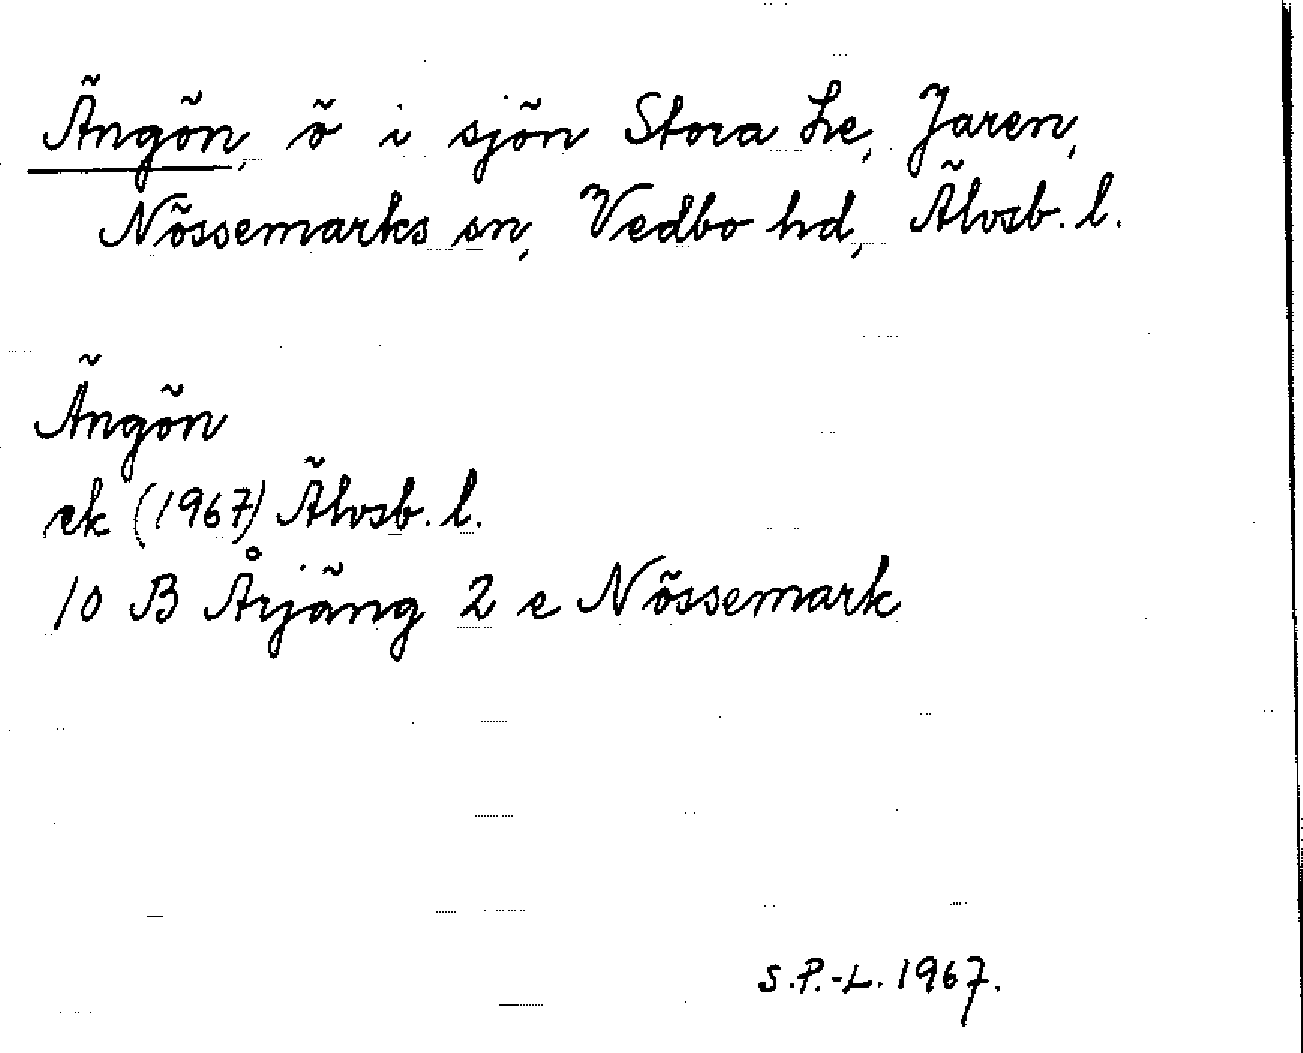 Ängön, ö i sjön Stora Le, Jaren,
Nössemarks sn, Vedbo hd, Älvsb. l.
Ängön
ek (1967) Älvsb. l.
10 B Årjäng 2 e Nössemark
S.P.-L. 1967.